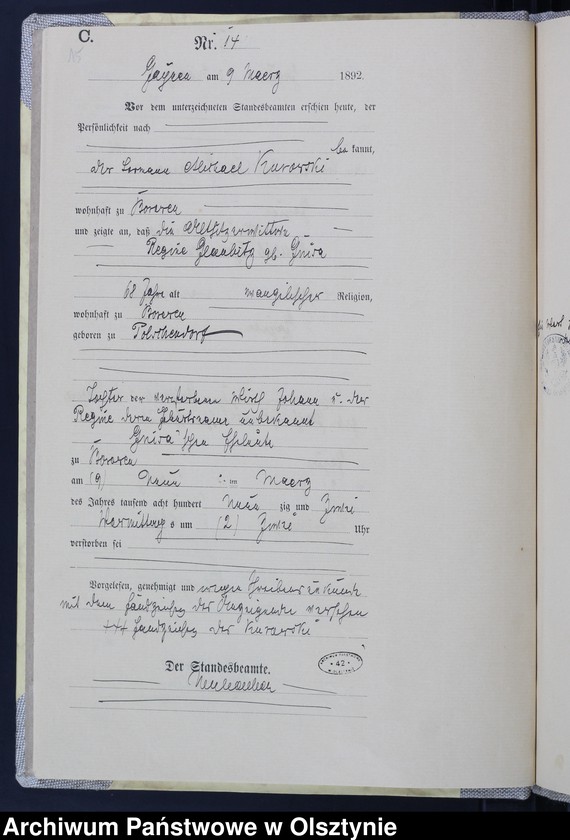 C.
Nr. 14
am 9 Maerz 1892.
Vor dem unterzeichneten Standesbeamten erschien heute, der
Persönlichkeit nach
be kannt,
der Losmann Michael Kurowski
wohnhaft zu
und zeigte an, daß die Altsitzerwittwe
Regine Glaubitz gb. Gnisa
68 Jahre alt evangelischer Religion,
wohnhaft zu
geboren zu
Tochter der verstorbenen Wirth Johann u. der
Regine deren Geburtsname unbekannt
Gnisa'schen Eheleute
zu
am (9) Neun ten Maerz
des Jahres tausend acht hundert Neun zig und Zwei
Vormittags um (2) Zwei Uhr
verstorben sei
Vorgelesen, genehmigt und wegen Schreibensunkunde
mit dem Handzeichen des Anzeigenden versehen
+++ Handzeichen des Kurowski
Der Standesbeamte.
42
Archiwum Państwowe w Olsztynie